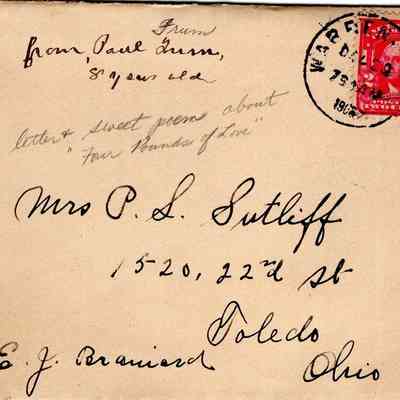 Frum
from, Paul Frum,
8 years old
letter & sweet poems about
"Four Pounds of Love"
WARREN
DEC
190
TWO
Mrs P. S. Sutliff
1520, 22nd st
Toledo
Ohio
E. J. Brainard